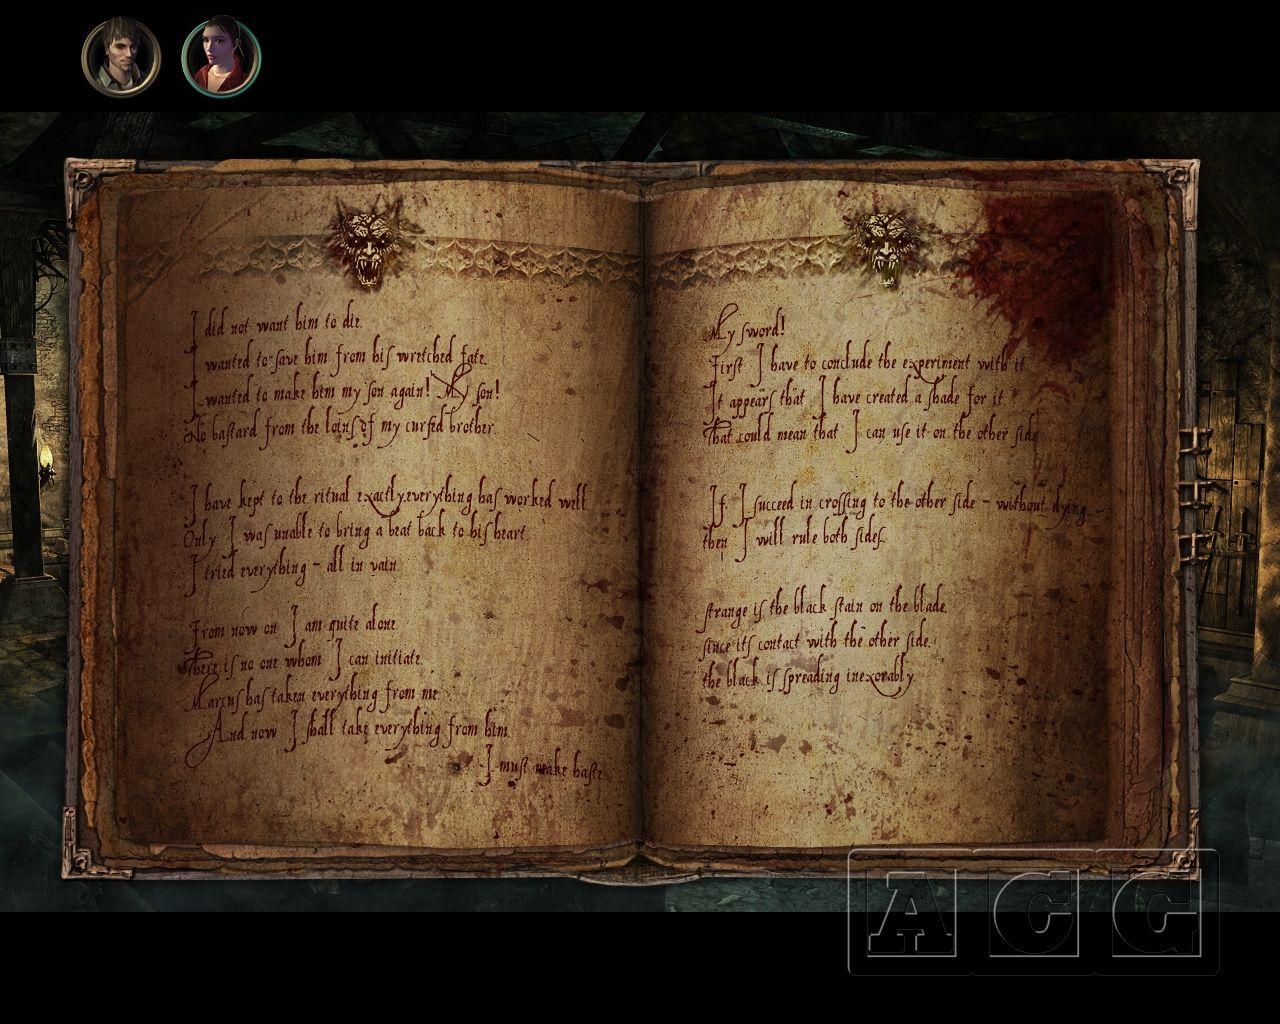 I did not want him to die.
I wanted to save him from his wretched fate.
I wanted to make him my son again! My son!
No bastard from the loins of my cursed brother.
I have kept to the ritual exactly. everything has worked well
Only I was unable to bring a beat back to his heart
I tried everything - all in vain
From now on I am quite alone
there is no one whom I can initiate
Marcus has taken everything from me
And now I shall take everything from him
I must make haste
My sword!
First I have to conclude the experiment with it
It appears that I have created a shade for it
That could mean that I can use it on the other side
If I succeed in crossing to the other side - without dying
then I will rule both sides.
strange is the black stain on the blade.
since its contact with the other side.
the black is spreading inexorably.
ACG